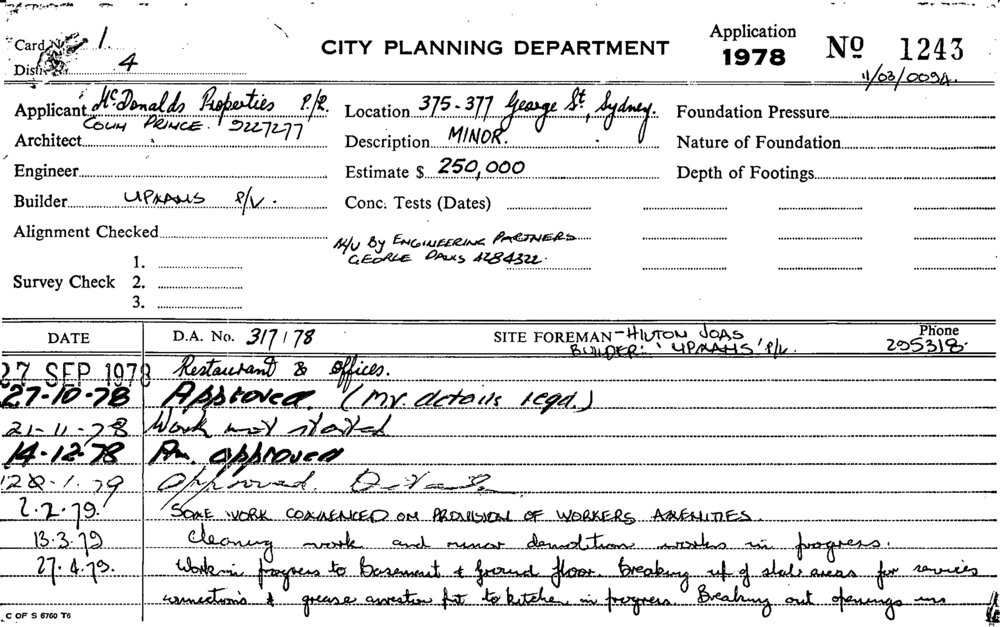 Card No. 1.
CITY PLANNING DEPARTMENT
Application
1978
No 1243
4
11/03/0094.
Applicant McDonalds Properties P/L
Location 375-377 George St., Sydney.
Foundation Pressure
COLIN PRINCE. 9227277
Architect
Description MINOR.
Nature of Foundation
Engineer
Estimate $ 250,000
Depth of Footings
Builder P/L.
Conc. Tests (Dates)
Alignment Checked
BY ENGINEERING PARTNERS
GEORGE
1.
Survey Check 2.
3.
DATE
D.A. No. 317/78
SITE FOREMAN - HILTON JOAS
Phone
BUILDER: P/L.
295318
27 SEP 1978 Restaurant & Offices.
27-10-78 Approved. (Mv. details reqd.)
21-11-78 Work not started
14-12-78 Am. approved
Approved.
2.2.79. SOME WORK COMMENCED ON PROVISION OF WORKERS AMENITIES.
13.3.79 Cleaning work and minor demolition works in progress.
27.4.79. Work in progress to Basement & ground floor. Breaking up of slab areas for services
connections & grease arrestor pit to kitchen in progress. Breaking out openings
C OF S 6760 T6